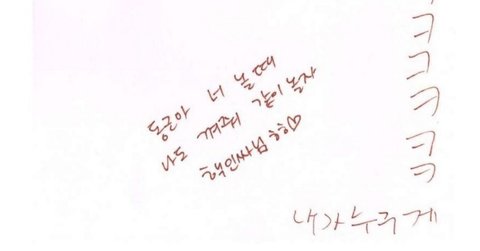 동근아 너 놀때
나도 껴줘 같이 놀자
핵인싸님 ㅎㅎ♡
ㅋ
ㅋ
ㅋ
ㅋ
ㅋ
내가누구게